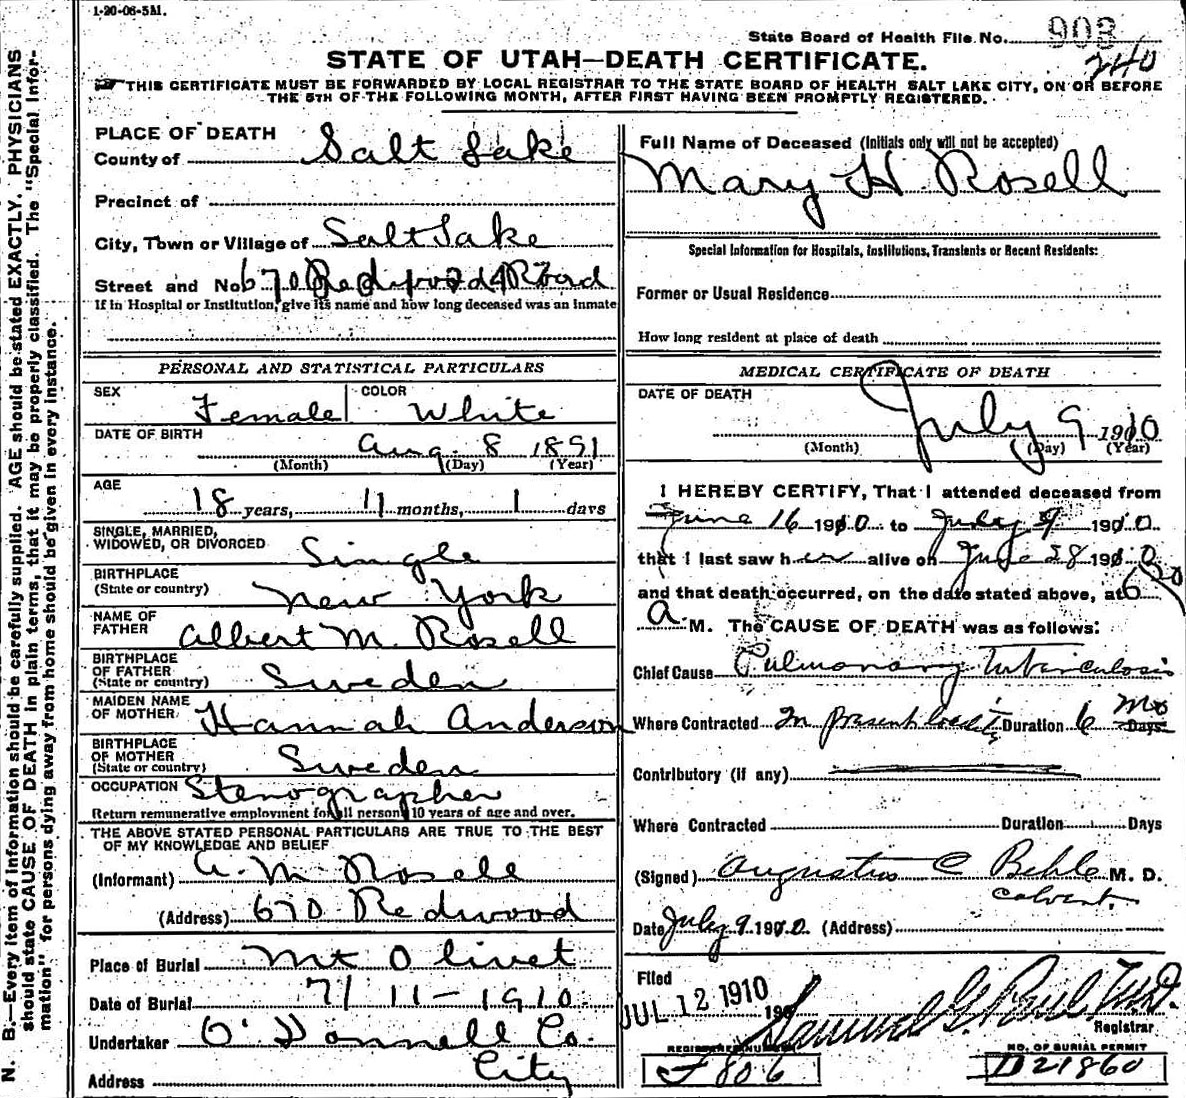 1-20-06-5M.
State Board of Health File No. 903
240
STATE OF UTAH—DEATH CERTIFICATE.
THIS CERTIFICATE MUST BE FORWARDED BY LOCAL REGISTRAR TO THE STATE BOARD OF HEALTH SALT LAKE CITY, ON OR BEFORE
THE 5TH OF THE FOLLOWING MONTH, AFTER FIRST HAVING BEEN PROMPTLY REGISTERED.
N. B.—Every item of information should be carefully supplied. AGE should be stated EXACTLY. PHYSICIANS
should state CAUSE OF DEATH in plain terms, that it may be properly classified. The "Special Infor-
mation" for persons dying away from home should be given in every instance.
PLACE OF DEATH
County of Salt Lake
Precinct of
City, Town or Village of Salt Lake
Street and No. 670 Redwood Road
If in Hospital or Institution, give its name and how long deceased was an inmate
PERSONAL AND STATISTICAL PARTICULARS
SEX Female COLOR White
DATE OF BIRTH Aug. 8 1891
(Month) (Day) (Year)
AGE
18 years, 11 months, 1 days
SINGLE, MARRIED,
WIDOWED, OR DIVORCED Single
BIRTHPLACE
(State or country) New York
NAME OF
FATHER Albert M. Rosell
BIRTHPLACE
OF FATHER
(State or country) Sweden
MAIDEN NAME
OF MOTHER Hannah Anderson
BIRTHPLACE
OF MOTHER
(State or country) Sweden
OCCUPATION Stenographer
Return remunerative employment for all persons 10 years of age and over.
THE ABOVE STATED PERSONAL PARTICULARS ARE TRUE TO THE BEST
OF MY KNOWLEDGE AND BELIEF
(Informant) A. M. Rosell
(Address) 670 Redwood
Place of Burial Mt Olivet
Date of Burial 7/11-1910.
Undertaker O'Donnell Co.
Address City
Full Name of Deceased (Initials only will not be accepted)
Mary H. Rosell
Special Information for Hospitals, Institutions, Transients or Recent Residents:
Former or Usual Residence
How long resident at place of death
MEDICAL CERTIFICATE OF DEATH
DATE OF DEATH
July 9 1910
(Month) (Day) (Year)
I HEREBY CERTIFY, That I attended deceased from
June 16 1910 to July 9 1910
that I last saw her alive on June 28 1910
and that death occurred, on the date stated above, at 6 30
A. M. The CAUSE OF DEATH was as follows:
Chief Cause Pulmonary Tuberculosis
Where Contracted In present locality Duration 6 Mo Days
Contributory (if any)
Where Contracted Duration Days
(Signed) Augustus C Behle M. D.
Date July 9 1910. (Address)
Filed
JUL 12 1910 190
Samuel G. Paul M.D.
Registrar
REGISTERED NUMBER
F 806
NO. OF BURIAL PERMIT
D21860